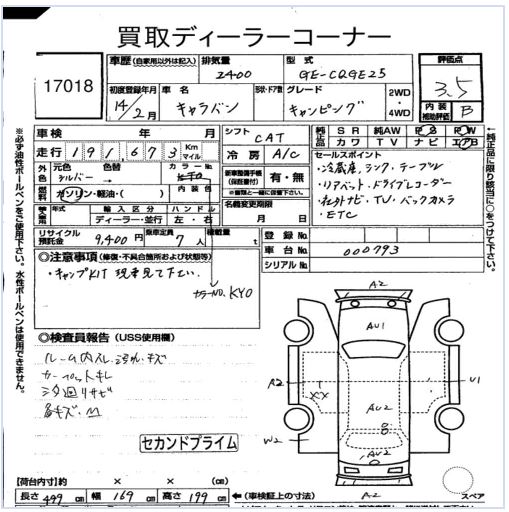 買取ディーラーコーナー
17018
車歴 (自家用以外は記入)
排気量
2400
型式
GE-CQGE25
評価点
3.5
初度登録年月
14/2月
車名
キャラバン
形状・ドア数
グレード
キャンピング
2WD
・
4WD
内装
補助評価
B
車検 年 月
シフト
CAT
純正品
SR 純AW PS PW
カワ TV ナビ エアB
走行 191,673 Km
マイル
冷房
A/C
セールスポイント
・冷蔵庫, シンク・テーブル
・リアベット・ドライブレコーダー
・社外ナビ・TV・バックカメラ
・ETC
外色
元色 色替
シルバー
カラーNo.
内装色
新車整備手帳
(保証書付)
有・無
※書類と一緒に保管下さい。
燃料
ガソリン・軽油・( )
名義変更期限
月 日
年式
輸入区分
ディーラー・並行
ハンドル
左・右
リサイクル
預託金
9,400円
乗車定員
7人
積載量
t
登録No.
車台No.
000793
シリアルNo.
◎注意事項 (修復・不具合箇所および状態等)
・キャンプKIT 現車見て下さい.
カラーNO. KY0
◎検査員報告 (USS使用欄)
ルーム内ヘレ 汚れ キズ
カーペットキレ
下廻リサビ
各キズ. M
セカンドプライム
A2
AU1
A2
XX
U1
AU2
W2
AU2
A2
スペア
【荷台内寸】約 × × (cm)
長さ 499 cm 幅 169 cm 高さ 199 cm ←(車検証上の寸法)
※必ず油性ボールペンをご使用下さい。水性ボールペンは使用できません。
←純正品に限り該当に○をつけて下さい。